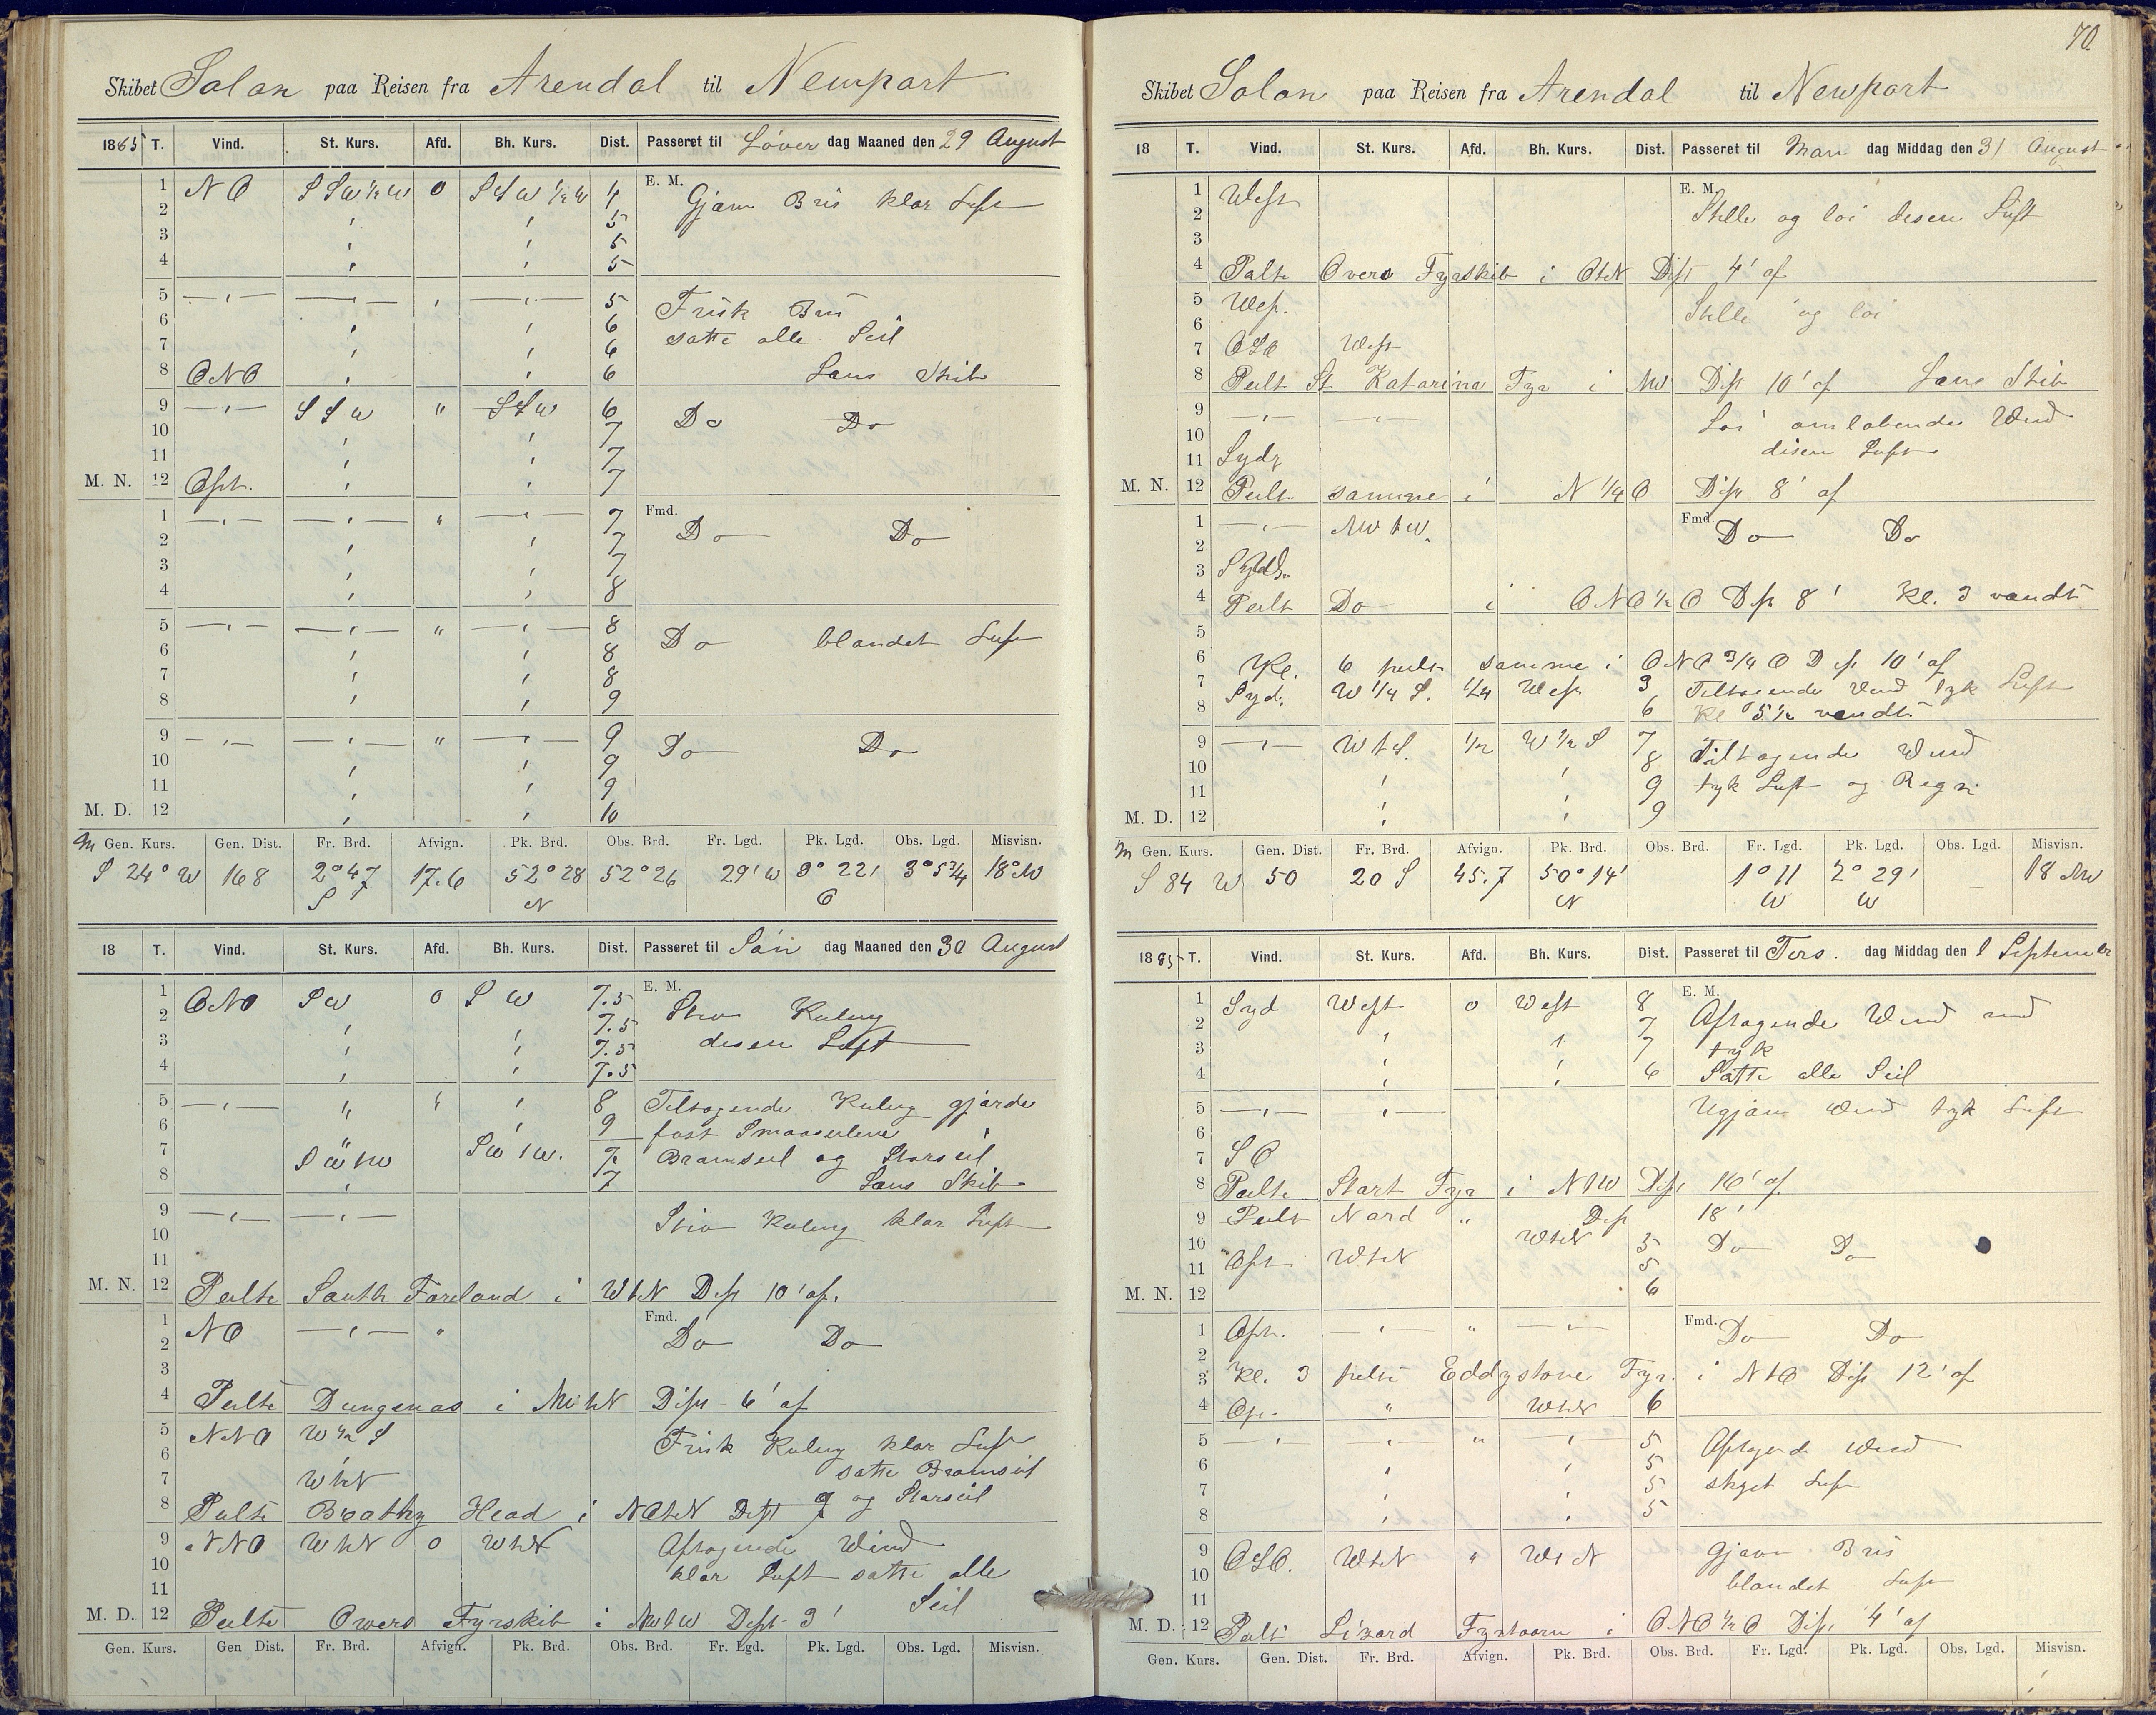 70
Skibet Solon paa Reisen fra Arendal til Newport
1865 T. Vind. St. Kurs. Afd. Bh. Kurs. Dist. Passeret til Löver dag Maaned den 29 August
1 NO SSW½W 0 SSW½W 4 E. M.
2 " " 5 Gjævn Bris klar Luft
3 " " 5
4 " " 5
5 —"— —"— " —"— 5 Frisk Bris
6 " " 6 satte alle Seil
7 " " 6
8 ONO " " 6 Lans Skib
9 —"— SSW " SSW 6 Do Do
10 " " 7
11 " " 7
M. N. 12 Ost. " " 7
1 —"— —"— " —"— 7 Fmd.
2 " " 7 Do Do
3 " " 7
4 " " 8
5 —"— —"— " —"— 8 Do blandet Luft
6 " " 8
7 " " 8
8 " " 9
9 —"— —"— " —"— 9 Do Do
10 " " 9
11 " " 9
M. D. 12 " " 10
M Gen. Kurs. Gen. Dist. Fr. Brd. Afvign. Pk. Brd. Obs. Brd. Fr. Lgd. Pk. Lgd. Obs. Lgd. Misvisn.
S 24° W 168 2°47 S 17.6 52°28 N 52°26 29'W 3°22' O 3°5¾ 18°NW
18 T. Vind. St. Kurs. Afd. Bh. Kurs. Dist. Passeret til Sön dag Maaned den 30 August
1 ONO SW 0 SW 7.5 E. M.
2 " " 7.5 Stiv Kuling
3 " " 7.5 disen Luft
4 " " 7.5
5 —"— " " " 8 Tiltagende Kuling gjorde
6 " " 9 fast Smaaseilene
7 SWtW SWtW. 7. Bramseil og Storseil
8 " 7 Lans Skib
9 —"— —"— Stiv Kuling klar Luft
10
11
M. N. 12 Peilte South Foreland i WtN Dist 10' af.
1 NO —"— " Fmd.
2 Do Do
3
4 Peilte Dungenas i NWtN Dist 6' af
5 NNO W½S Frisk Kuling klar Luft
6 satte Bramseil
7 WtN og Storseil
8 Peilte Beathy Head i NOtN Dist 9
9 NNO WtN 0 WtN Aftagende Wind
10 klar Luft satte alle
11 Seil
M. D. 12 Peilte Owers Fyrskib i NWtW Dist 3'
Gen. Kurs. Gen Dist. Fr. Brd. Afvign. Pk. Brd. Obs. Brd. Fr. Lgd. Pk. Lgd. Obs. Lgd. Misvisn.
Skibet Solon paa Reisen fra Arendal til Newport
18 T. Vind. St. Kurs. Afd. Bh. Kurs. Dist. Passeret til Man dag Middag den 31 August
1 West E. M.
2 Stille og löi disen Luft
3
4 Peilte Overs Fyrskib i OtN Dist 4' af
5 West. Stille og löi
6
7 OSO West
8 Peilt St Katarina Fyr i NW Dist 10' af Lans Skib
9 —"— —"— Löi omlöbende Wind
10 disen Luft
11 Sydl
M. N. 12 Peilt samme i N¼O Dist 8' af
1 —"— NWtW. Fmd
2 Do Do
3 Sydl.
4 Peilt Do i ONO½O Dist 8' Kl. 3 vendte
5
6 Kl. 6 peilt samme i ONO¾O Dist 10' af
7 Syd. W¼S. ¼ West 3 Tiltagende Vind tyk Luft
8 6 Kl 5½ vendte
9 —"— WtS. ½ W½S 7 Tiltagende Wind
10 " " 8 tyk Luft og Regn
11 " " 9
M. D. 12 " " 9
M Gen. Kurs. Gen. Dist. Fr. Brd. Afvign. Pk. Brd. Obs. Brd. Fr. Lgd. Pk. Lgd. Obs. Lgd. Misvisn.
S 84 W 50 20 S 45.7 50°14' N 1°11 W 2°29' W — 18 NW
1885 T. Vind. St. Kurs. Afd. Bh. Kurs. Dist. Passeret til Tors. dag Middag den 1 September
1 Syd West 0 West 8 E. M.
2 " " 7 Aftagende Wind med
3 " " 7 tyk
4 " " 6 Satte alle Seil
5 —"— —"— Ugjævn Wind tyk Luft
6
7 SO
8 Peilte Start Fyr i NtW Dist 16' af
9 Peilt Nord " Dist 18'
10 WtN 5 Do Do
11 Ost WtN 5
M. N. 12 6
1 Ost. —"— " —"— Fmd.
2 Do Do
3 Kl. 3 peilte Eddystone Fyr. i NtO Dist 12' af
4 Ost. " WtN 6
5 —"— " " " 5 Aftagende Wind
6 " " 5 skyet Luft
7 " " 5
8 " " 5
9 OSO. WtN " WtN Gjævn Bris
10 blandet Luft
11
M. D. 12 Peilt Lizard Fyrtaarn i ONO½O Dist 4' af
Gen. Kurs. Gen. Dist. Fr. Brd. Afvign. Pk. Brd. Obs. Brd. Fr. Lgd. Pk. Lgd. Obs. Lgd. Misvisn.